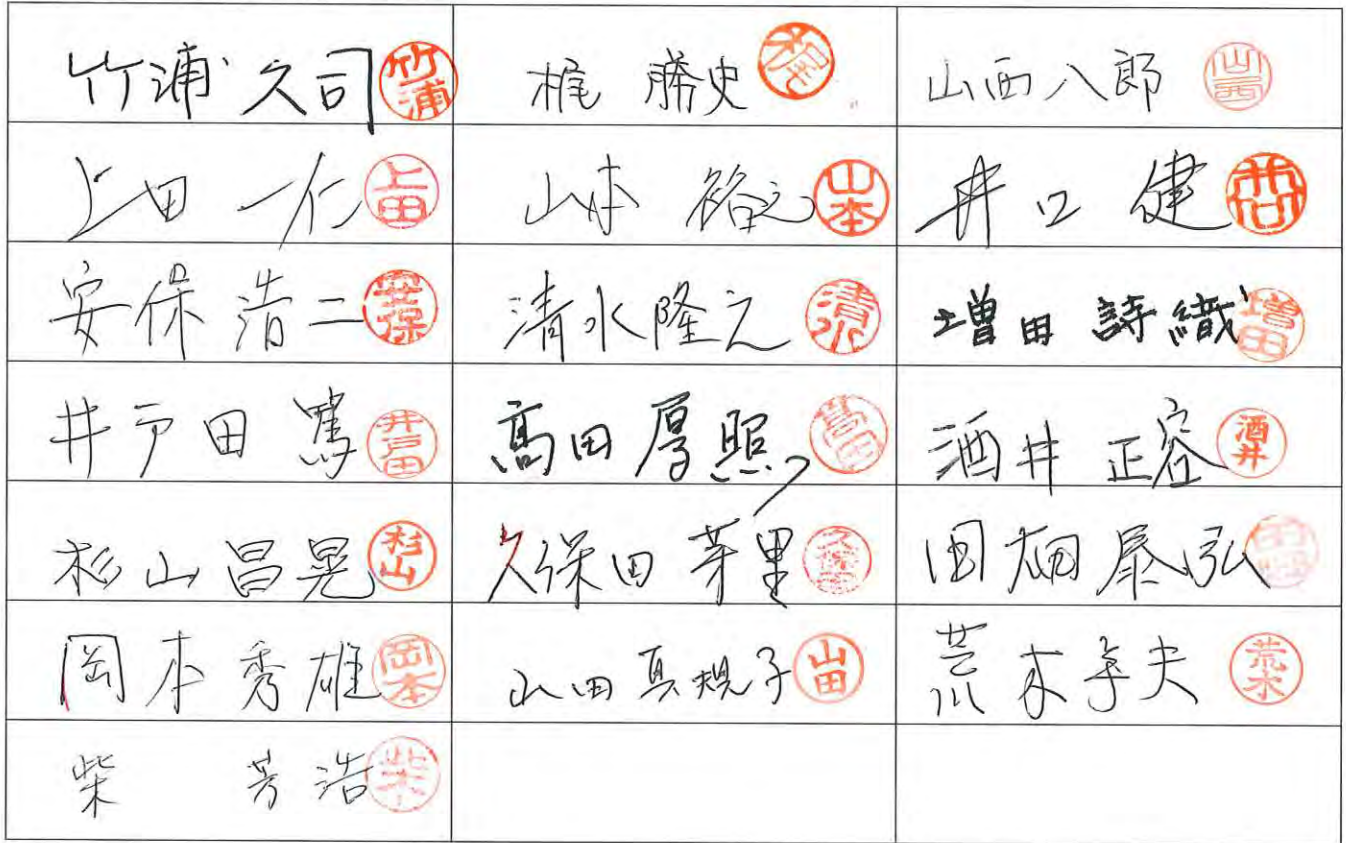 竹浦久司 竹浦
梶 勝史 梶
山西八郎 山西
上田 一仁 上田
山本 裕之 山本
井口 健 井口
安保浩二 安保
清水隆之 清水
増田 詩織 増田
井戸田 篤 井戸田
髙田 厚照 髙田
酒井 正容 酒井
杉山昌晃 杉山
久保田 芽里 久保田
田畑泰弘
岡本秀雄 岡本
山田真規子 山田
荒木 夫 荒木
柴 芳浩 柴